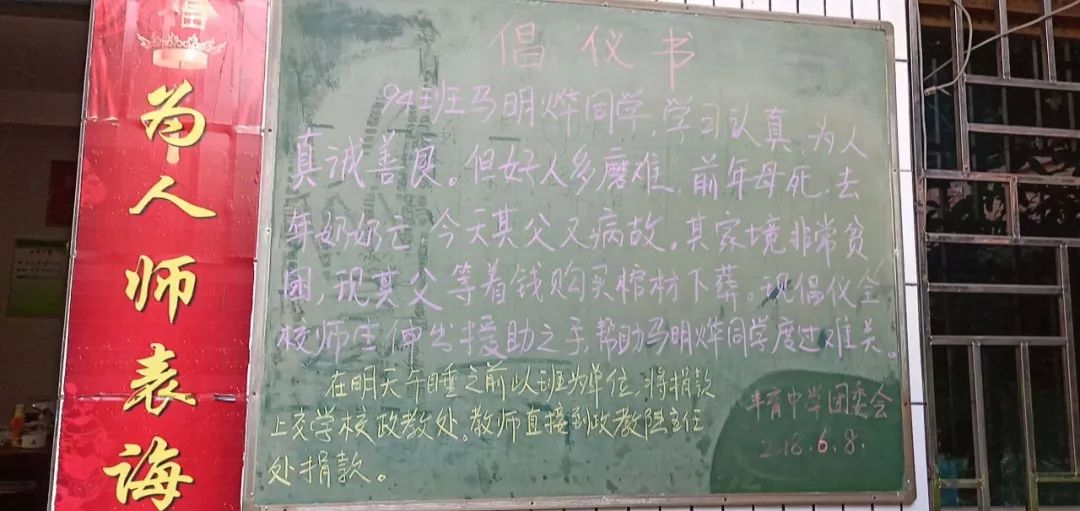 为人师表诲
倡仪书
94班马明烨同学,学习认真,为人
真诚善良。但好人多磨难,前年母死,去
年奶奶亡,今天其父又病故。其家境非常贫
困,现其父等着钱购买棺材下葬。现倡仪全
校师生伸出援助之手,帮助马明烨同学度过难关。
在明天午睡之前以班为单位,将捐款
上交学校政教处。教师直接到政教陆主任
处捐款。
丰育中学团委会
2018.6.8.